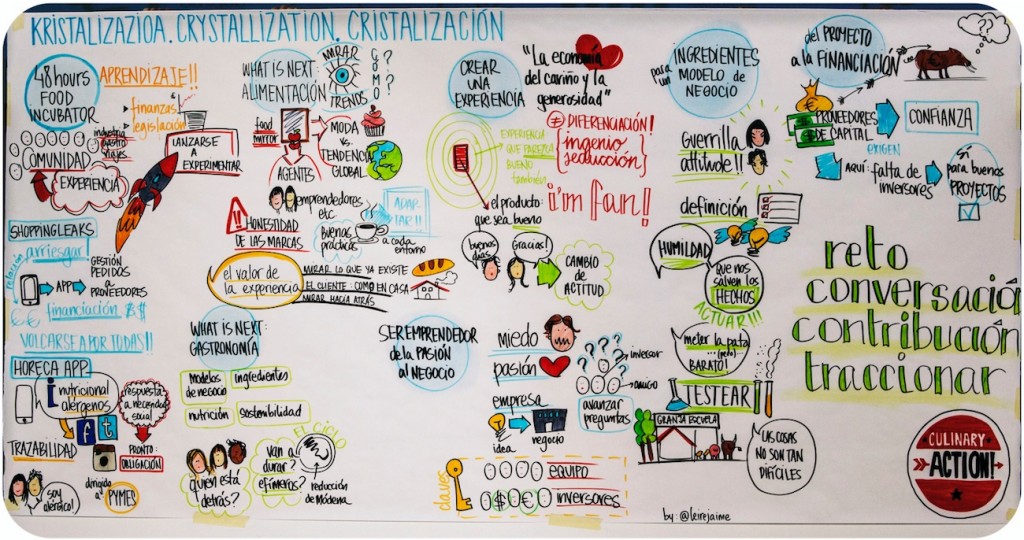 KRISTALIZAZIOA. CRYSTALLIZATION. CRISTALIZACIÓN
48 hours
FOOD
INCUBATOR
APRENDIZAJE!!
finanzas
legislación
industria
gastro
viajes
COMUNIDAD
EXPERIENCIA
LANZARSE
a
EXPERIMENTAR
SHOPPINGLEAKS
arriesgar
relación
APP
GESTIÓN
PEDIDOS
a
PROVEEDORES
€€ financiación $$
VOLCARSE A POR TODAS!!
HORECA APP
i nutricional
alérgenos
f t
respuesta
a necesidad
social
PRONTO:
OBLIGACIÓN
TRAZABILIDAD
¡soy
alérgico!
dirigido
a PYMES
WHAT IS NEXT:
ALIMENTACIÓN
MIRAR
TRENDS
¿CÓMO?
food
mirror
MODA
VS.
TENDENCIA
GLOBAL
AGENTES
emprendedores
etc
HONESTIDAD
DE LAS MARCAS
buenas
prácticas
ADAP
TAR!!
a cada
entorno
el valor de
la experiencia
MIRAR LO QUE YA EXISTE
EL CLIENTE: COMO EN CASA
MIRAR HACIA ATRÁS
WHAT IS NEXT:
GASTRONOMÍA
Modelos
de negocio
ingredientes
nutrición
sostenibilidad
quien está
detrás?
EL CICLO
van a
durar?
efímeros?
reducción
de Módena
CREAR
UNA
EXPERIENCIA
"La economía
del cariño y la
generosidad"
EXPERIENCIA
QUE PAREZCA
BUENO
también
DIFERENCIACIÓN!
ingenio
seducción
i'm fan!
el producto:
que sea bueno
buenos
días
Gracias!
CAMBIO
de
ACTITUD
SER EMPRENDEDOR
de la PASIÓN
al NEGOCIO
miedo
pasión
empresa
idea
negocio
????
inversor
amigo
avanzar
preguntas
claves
EQUIPO
$ € inversores
INGREDIENTES
para un MODELO de
NEGOCIO
Guerrilla
attitude!!
definición
HUMILDAD
que nos
salven los
HECHOS
ACTUAR!!!
meter la pata
...(pero)
BARATO!
TESTEAR
GRANJA ESCUELA
LAS COSAS
NO SON TAN
DIFÍCILES
del PROYECTO
a la FINANCIACIÓN
???
PROVEEDORES
DE CAPITAL
EXIGEN
CONFIANZA
AQUÍ: falta de
inversores
SÍ
para buenos
PROYECTOS
reto
conversación
contribución
traccionar
CULINARY
ACTION!
by: @leirejaime